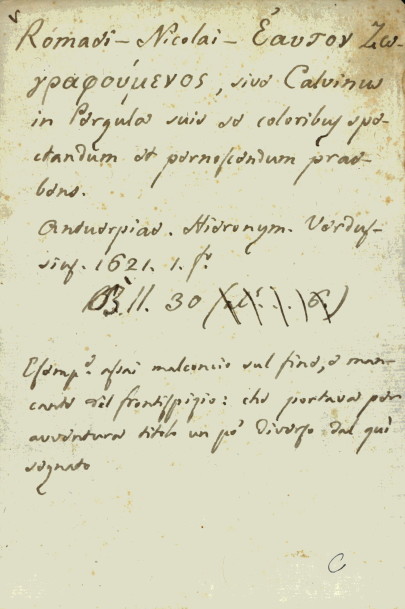 Rómadi - Nicolai - Ἑαυτον Ζω-
γραφούμενος, sive Calvinus
in Pergula suis se coloribus spe-
ctandum et pernoscendum prae-
bens.
Antuerpiae. Hieronym. Verdus-
sius. 1621. 1. fº
B. 11. 30
Esempº assai malconcio sul fine, e man-
cante del frontispizio: che portava per
avventura titolo un pò diverso dal quì
segnato
C